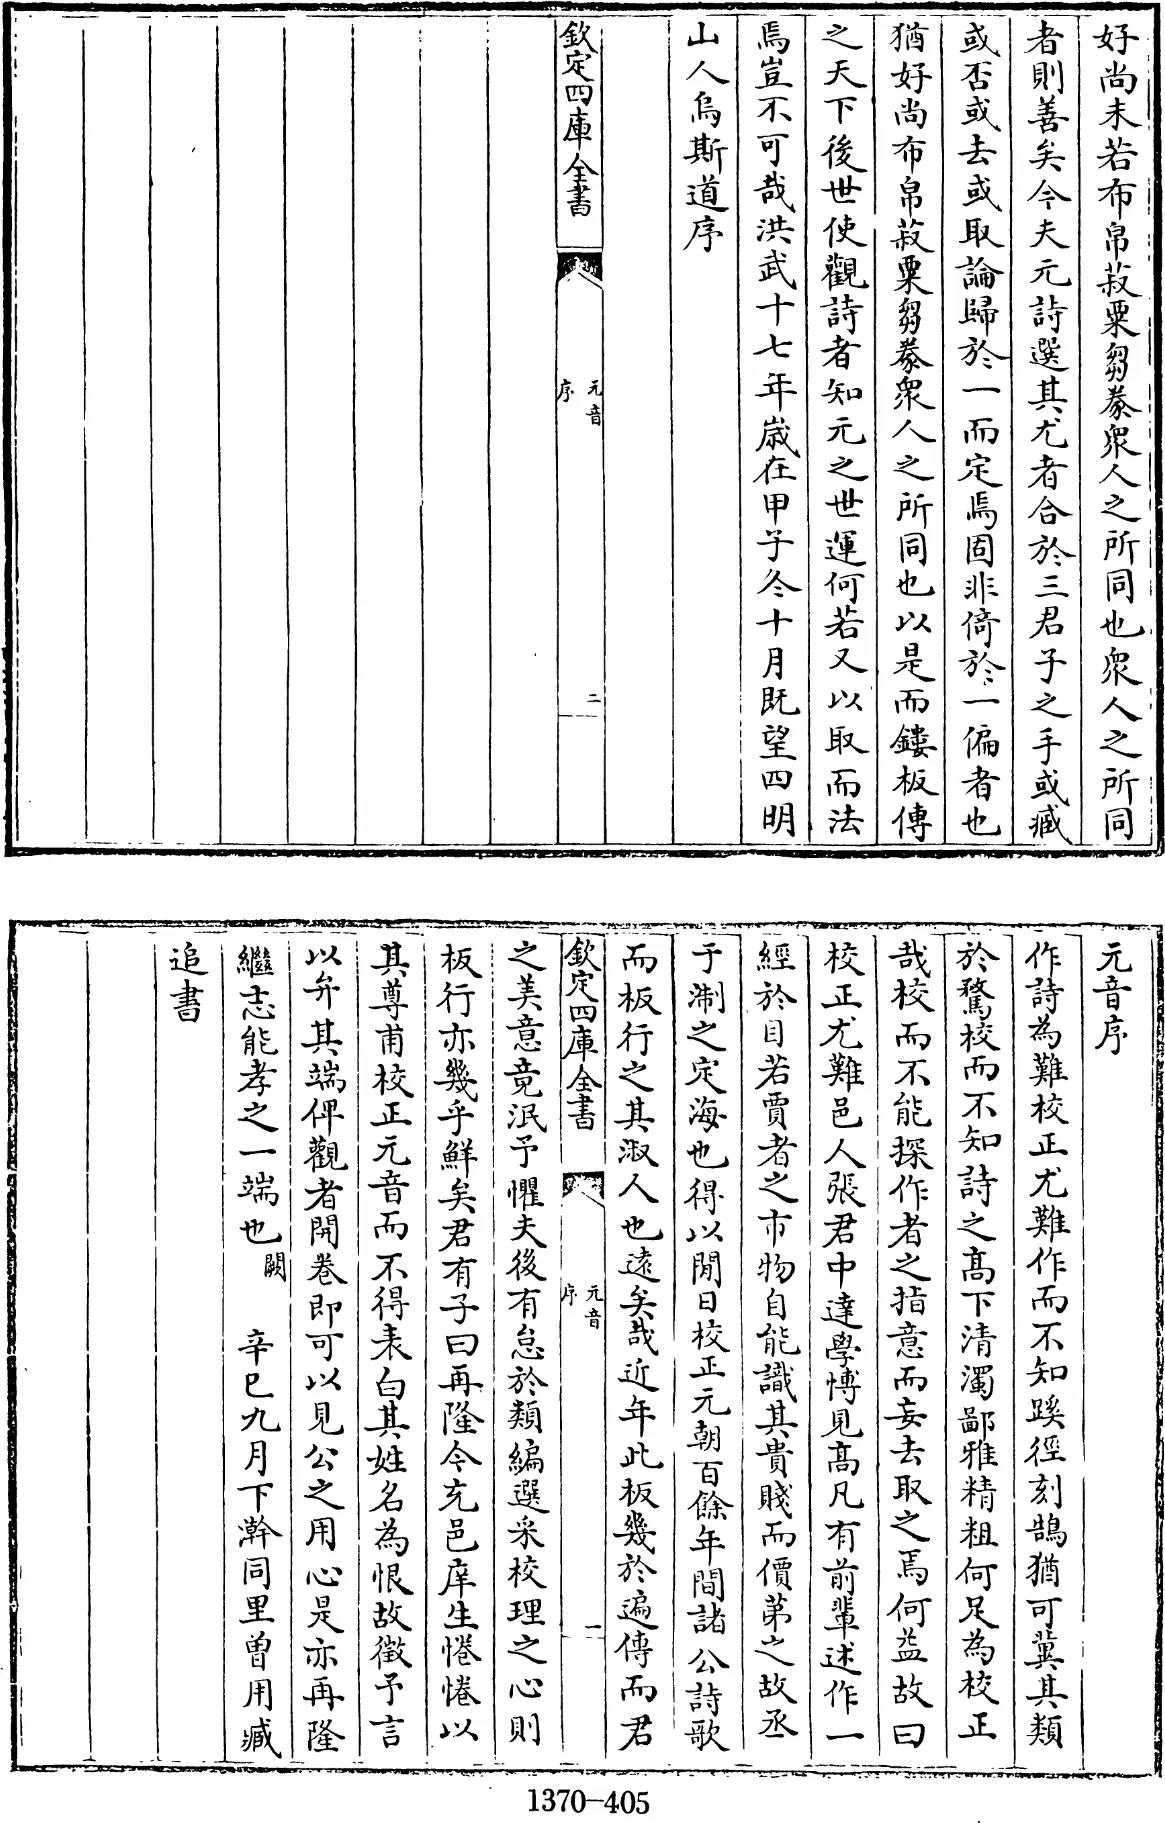 好尚未若布帛菽粟芻豢衆人之所同也衆人之所同
者則善矣今夫元詩選其尤者合於三君子之手或臧
或否或去或取論歸於一而定焉固非倚於一偏者也
猶好尚布帛菽粟芻豢衆人之所同也以是而鏤板傳
之天下後世使觀詩者知元之世運何若又以取而法
焉豈不可哉洪武十七年嵗在甲子冬十月既望四明
山人烏斯道序
欽定四庫全書
元音
序
二
元音序
作詩為難校正尤難作而不知蹊徑刻鵠猶可冀其類
於騖校而不知詩之髙下清濁鄙雅精粗何足為校正
哉校而不能探作者之指意而妄去取之焉何益故曰
校正尤難邑人張君中達學博見髙凡有前輩述作一
經於目若賈者之市物自能識其貴賤而價第之故丞
于淛之定海也得以閒日校正元朝百餘年間諸公詩歌
而板行之其淑人也遠矣哉近年此板幾於遍傳而君
欽定四庫全書
元音
序
一
之美意竟泯予懼夫後有怠於類編選采校理之心則
板行亦幾乎鮮矣君有子曰再隆今充邑庠生惓惓以
其尊甫校正元音而不得表白其姓名為恨故徵予言
以弁其端俾觀者開卷即可以見公之用心是亦再隆
繼志能孝之一端也闕 辛巳九月下澣同里曾用臧
追書
1370-405